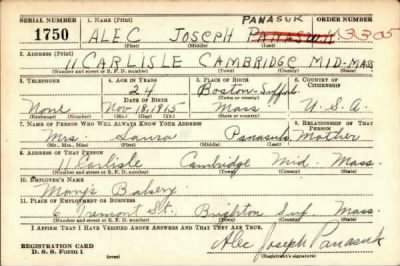 SERIAL NUMBER 1. NAME (Print) PANASUK ORDER NUMBER
1750 ALEC JOSEPH PANASUK 3305
(First) (Middle) (Last)
2. ADDRESS (Print)
11 CARLISLE CAMBRIDGE MID-MASS
(Number and street or R. F. D. number) (Town) (County) (State)
3. TELEPHONE 4. AGE IN YEARS 5. PLACE OF BIRTH 6. COUNTRY OF CITIZENSHIP
24 Boston-Suffolk
DATE OF BIRTH (Town or county)
None Nov 18, 1915 Mass U.S.A.
(Exchange) (Number) (Mo.) (Day) (Yr.) (State or country)
7. NAME OF PERSON WHO WILL ALWAYS KNOW YOUR ADDRESS 8. RELATIONSHIP OF THAT PERSON
Mrs. Laura Panasuk Mother
(Mr., Mrs., Miss) (First) (Middle) (Last)
9. ADDRESS OF THAT PERSON
11 Carlisle Cambridge Mid. Mass.
(Number and street or R. F. D. number) (Town) (County) (State)
10. EMPLOYER'S NAME
Bakery
11. PLACE OF EMPLOYMENT OR BUSINESS
Tremont St. Brighton Suf. Mass.
(Number and street or R. F. D. number) (Town) (County) (State)
I AFFIRM THAT I HAVE VERIFIED ABOVE ANSWERS AND THAT THEY ARE TRUE.
REGISTRATION CARD
D. S. S. Form 1 (over) Alec Joseph Panasuk
(Registrant's signature)